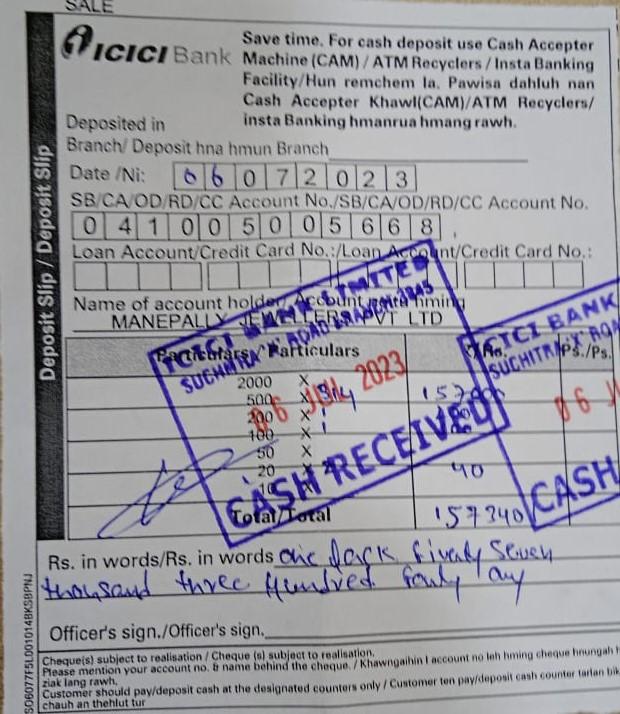 SALE
ICICI Bank
Save time. For cash deposit use Cash Accepter
Machine (CAM) / ATM Recyclers / Insta Banking
Facility/Hun remchem la. Pawisa dahluh nan
Cash Accepter Khawl(CAM)/ATM Recyclers/
insta Banking hmanrua hmang rawh.
Deposit Slip / Deposit Slip
Deposited in
Branch/ Deposit hna hmun Branch
Date /Ni: 06072023
SB/CA/OD/RD/CC Account No./SB/CA/OD/RD/CC Account No.
041005005668
Loan Account/Credit Card No.:/Loan Account/Credit Card No.:
Name of account holder/Account
MANEPALLY JEWELLERS PVT LTD
Particulars/ Particulars Ps./Ps.
2000 X
500 X 314 157000
200 X 1
100 X 1
50 X
20 X 2 40
10
Total/Total 157340
ICICI BANK LIMITED
SUCHITRA 'X' ROAD BRANCH-
06 JUL 2023
CASH RECEIVED
ICICI BANK
SUCHITRA 'X' ROA
06 J
CASH
Rs. in words/Rs. in words one lack fivety Seven
thousand three Hundred fourty
Officer's sign./Officer's sign.
Cheque(s) subject to realisation / Cheque (s) subject to realisation.
Please mention your account no. & name behind the cheque. / Khawngaihin I account no leh hming cheque hnungah
ziak lang rawh.
Customer should pay/deposit cash at the designated counters only / Customer ten pay/deposit cash counter tarlan
chauh an thehlut tur